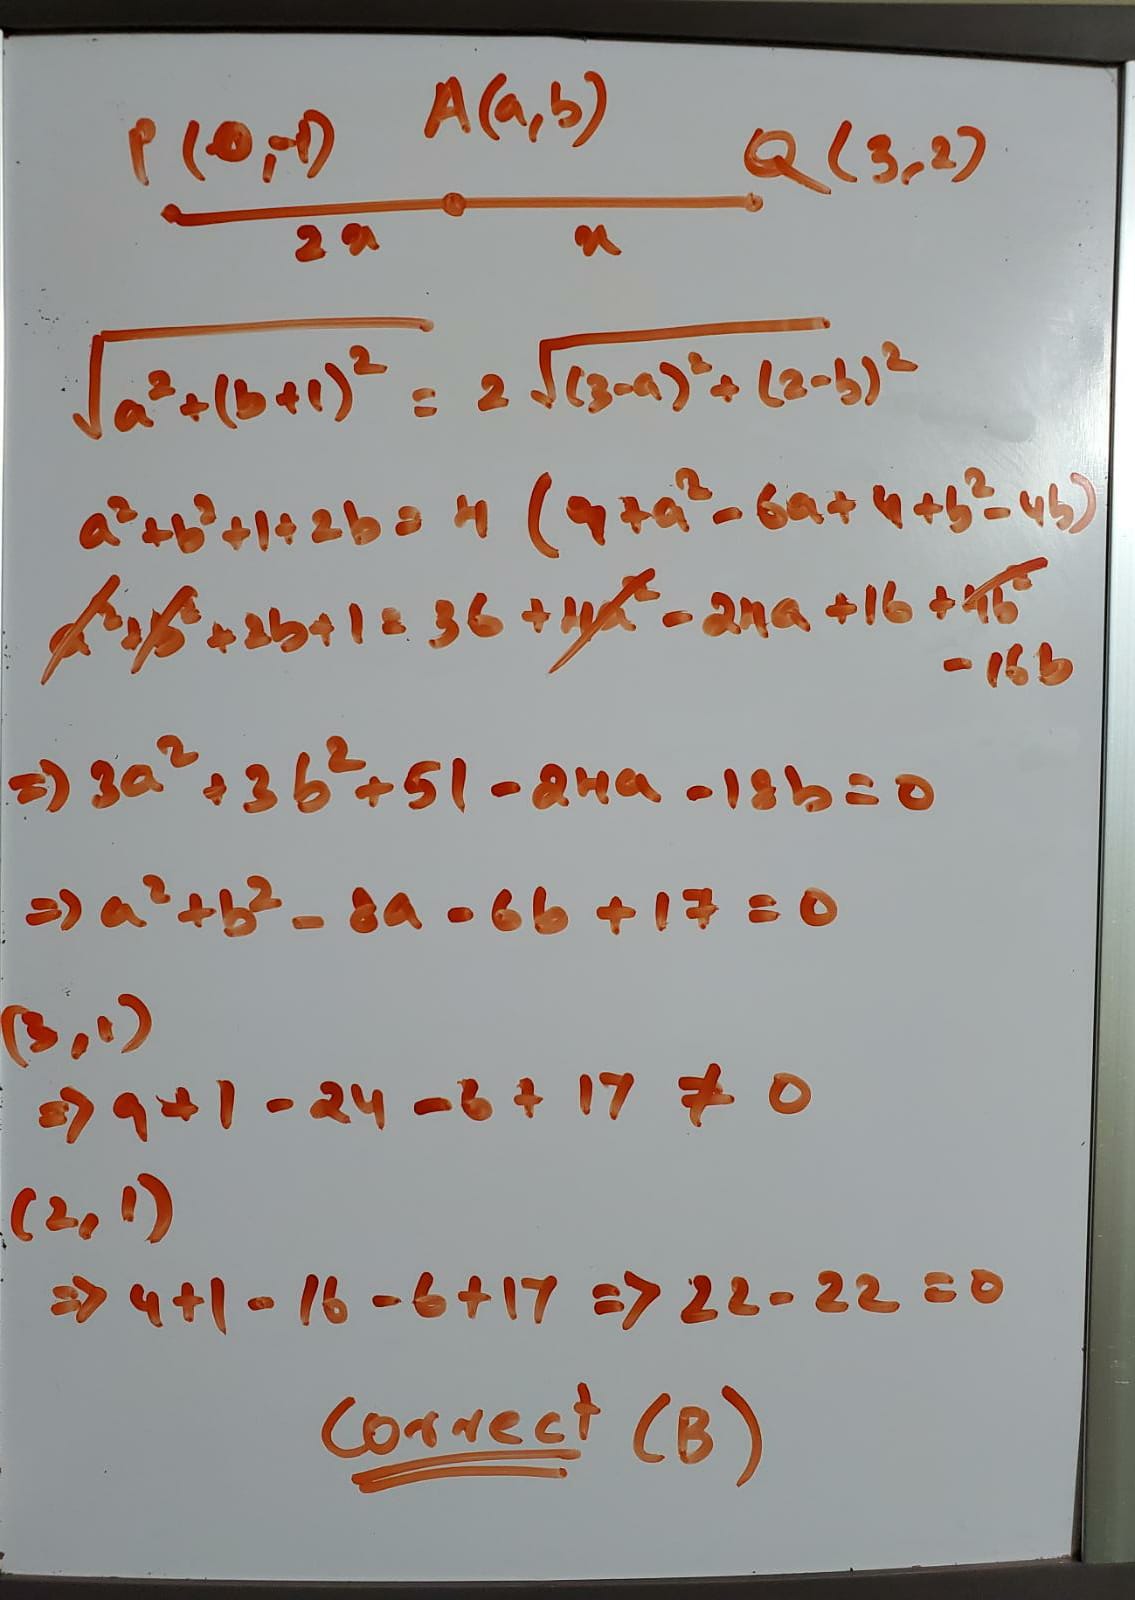 P(0,-1) A(a,b) Q(3,2)
2x x
√(a²+(b+1)²) = 2√((3-a)²+(2-b)²)
a²+b²+1+2b = 4(9+a²-6a+4+b²-4b)
a²+b²+2b+1 = 36+4a²-24a+16+4b²
-16b
=> 3a²+3b²+51-24a-18b=0
=> a²+b²-8a-6b+17=0
(3,1)
=> 9+1-24-6+17 ≠ 0
(2,1)
=> 4+1-16-6+17 => 22-22=0
Correct (B)